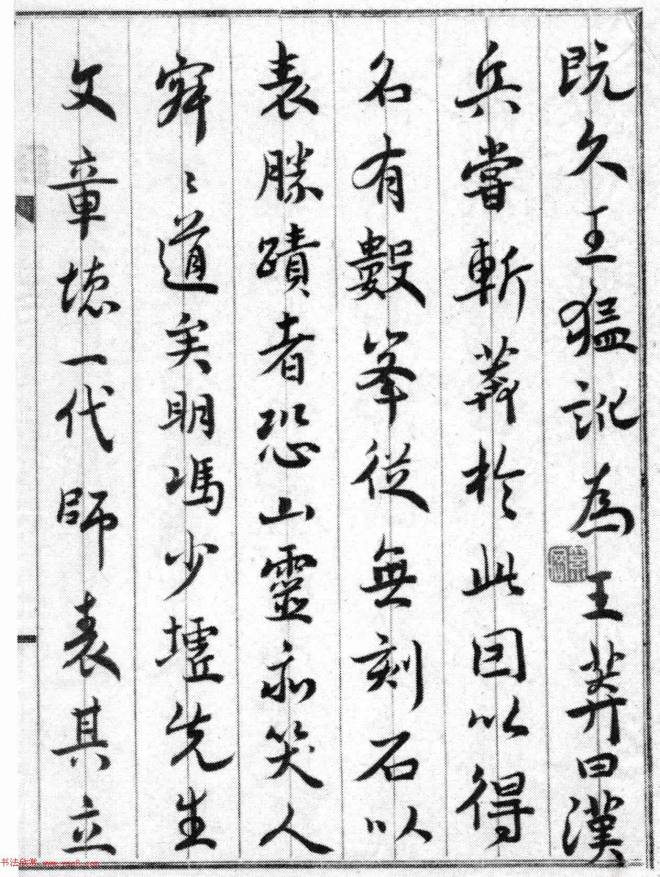 既久王猛訛為王莽曰漢
兵嘗斬莽於此因以得
名有數峯從無刻石以
表勝蹟者恐山靈亦笑人
道矣明馮少墟先生
文章堪一代師表其立
书法欣赏